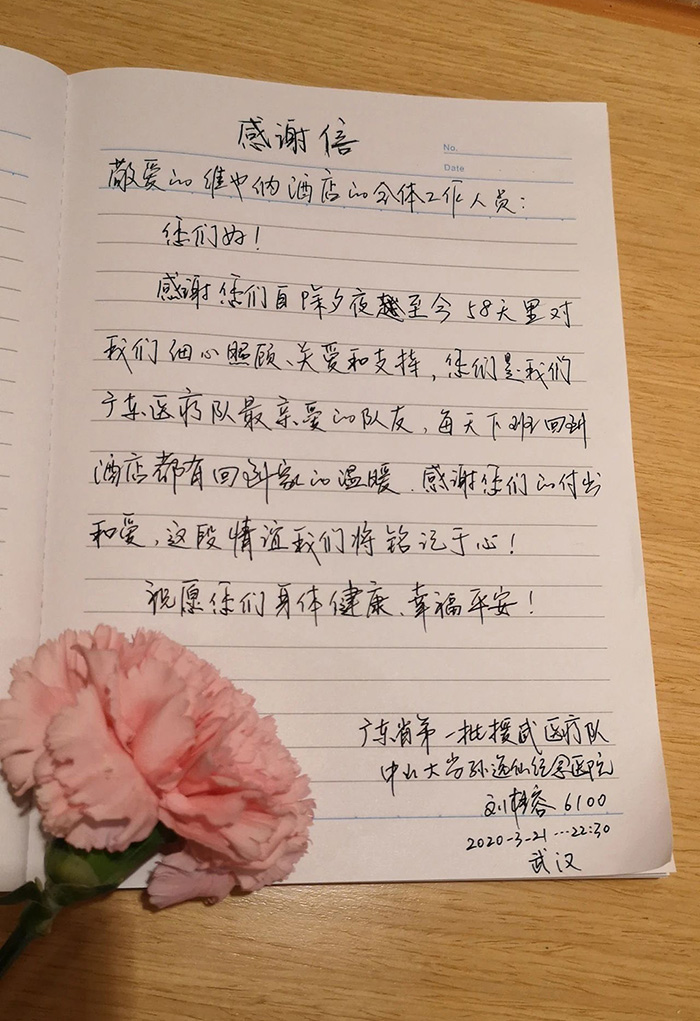 感谢信
No.
Date
敬爱的维也纳酒店的全体工作人员：
您们好！
感谢您们自除夕夜至今58天里对
我们细心照顾、关爱和支持，您们是我们
广东医疗队最亲爱的队友，每天下班回到
酒店都有回到家的温暖.感谢您们的付出
和爱，这段情谊我们将铭记于心！
祝愿您们身体健康、幸福平安！
广东省第一批援武医疗队
中山大学孙逸仙纪念医院
刘容 6100
2020-3-21…22:30
武汉